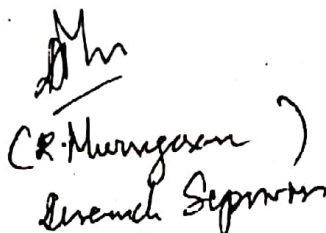 (R. Murugesan)
Research Supervisor